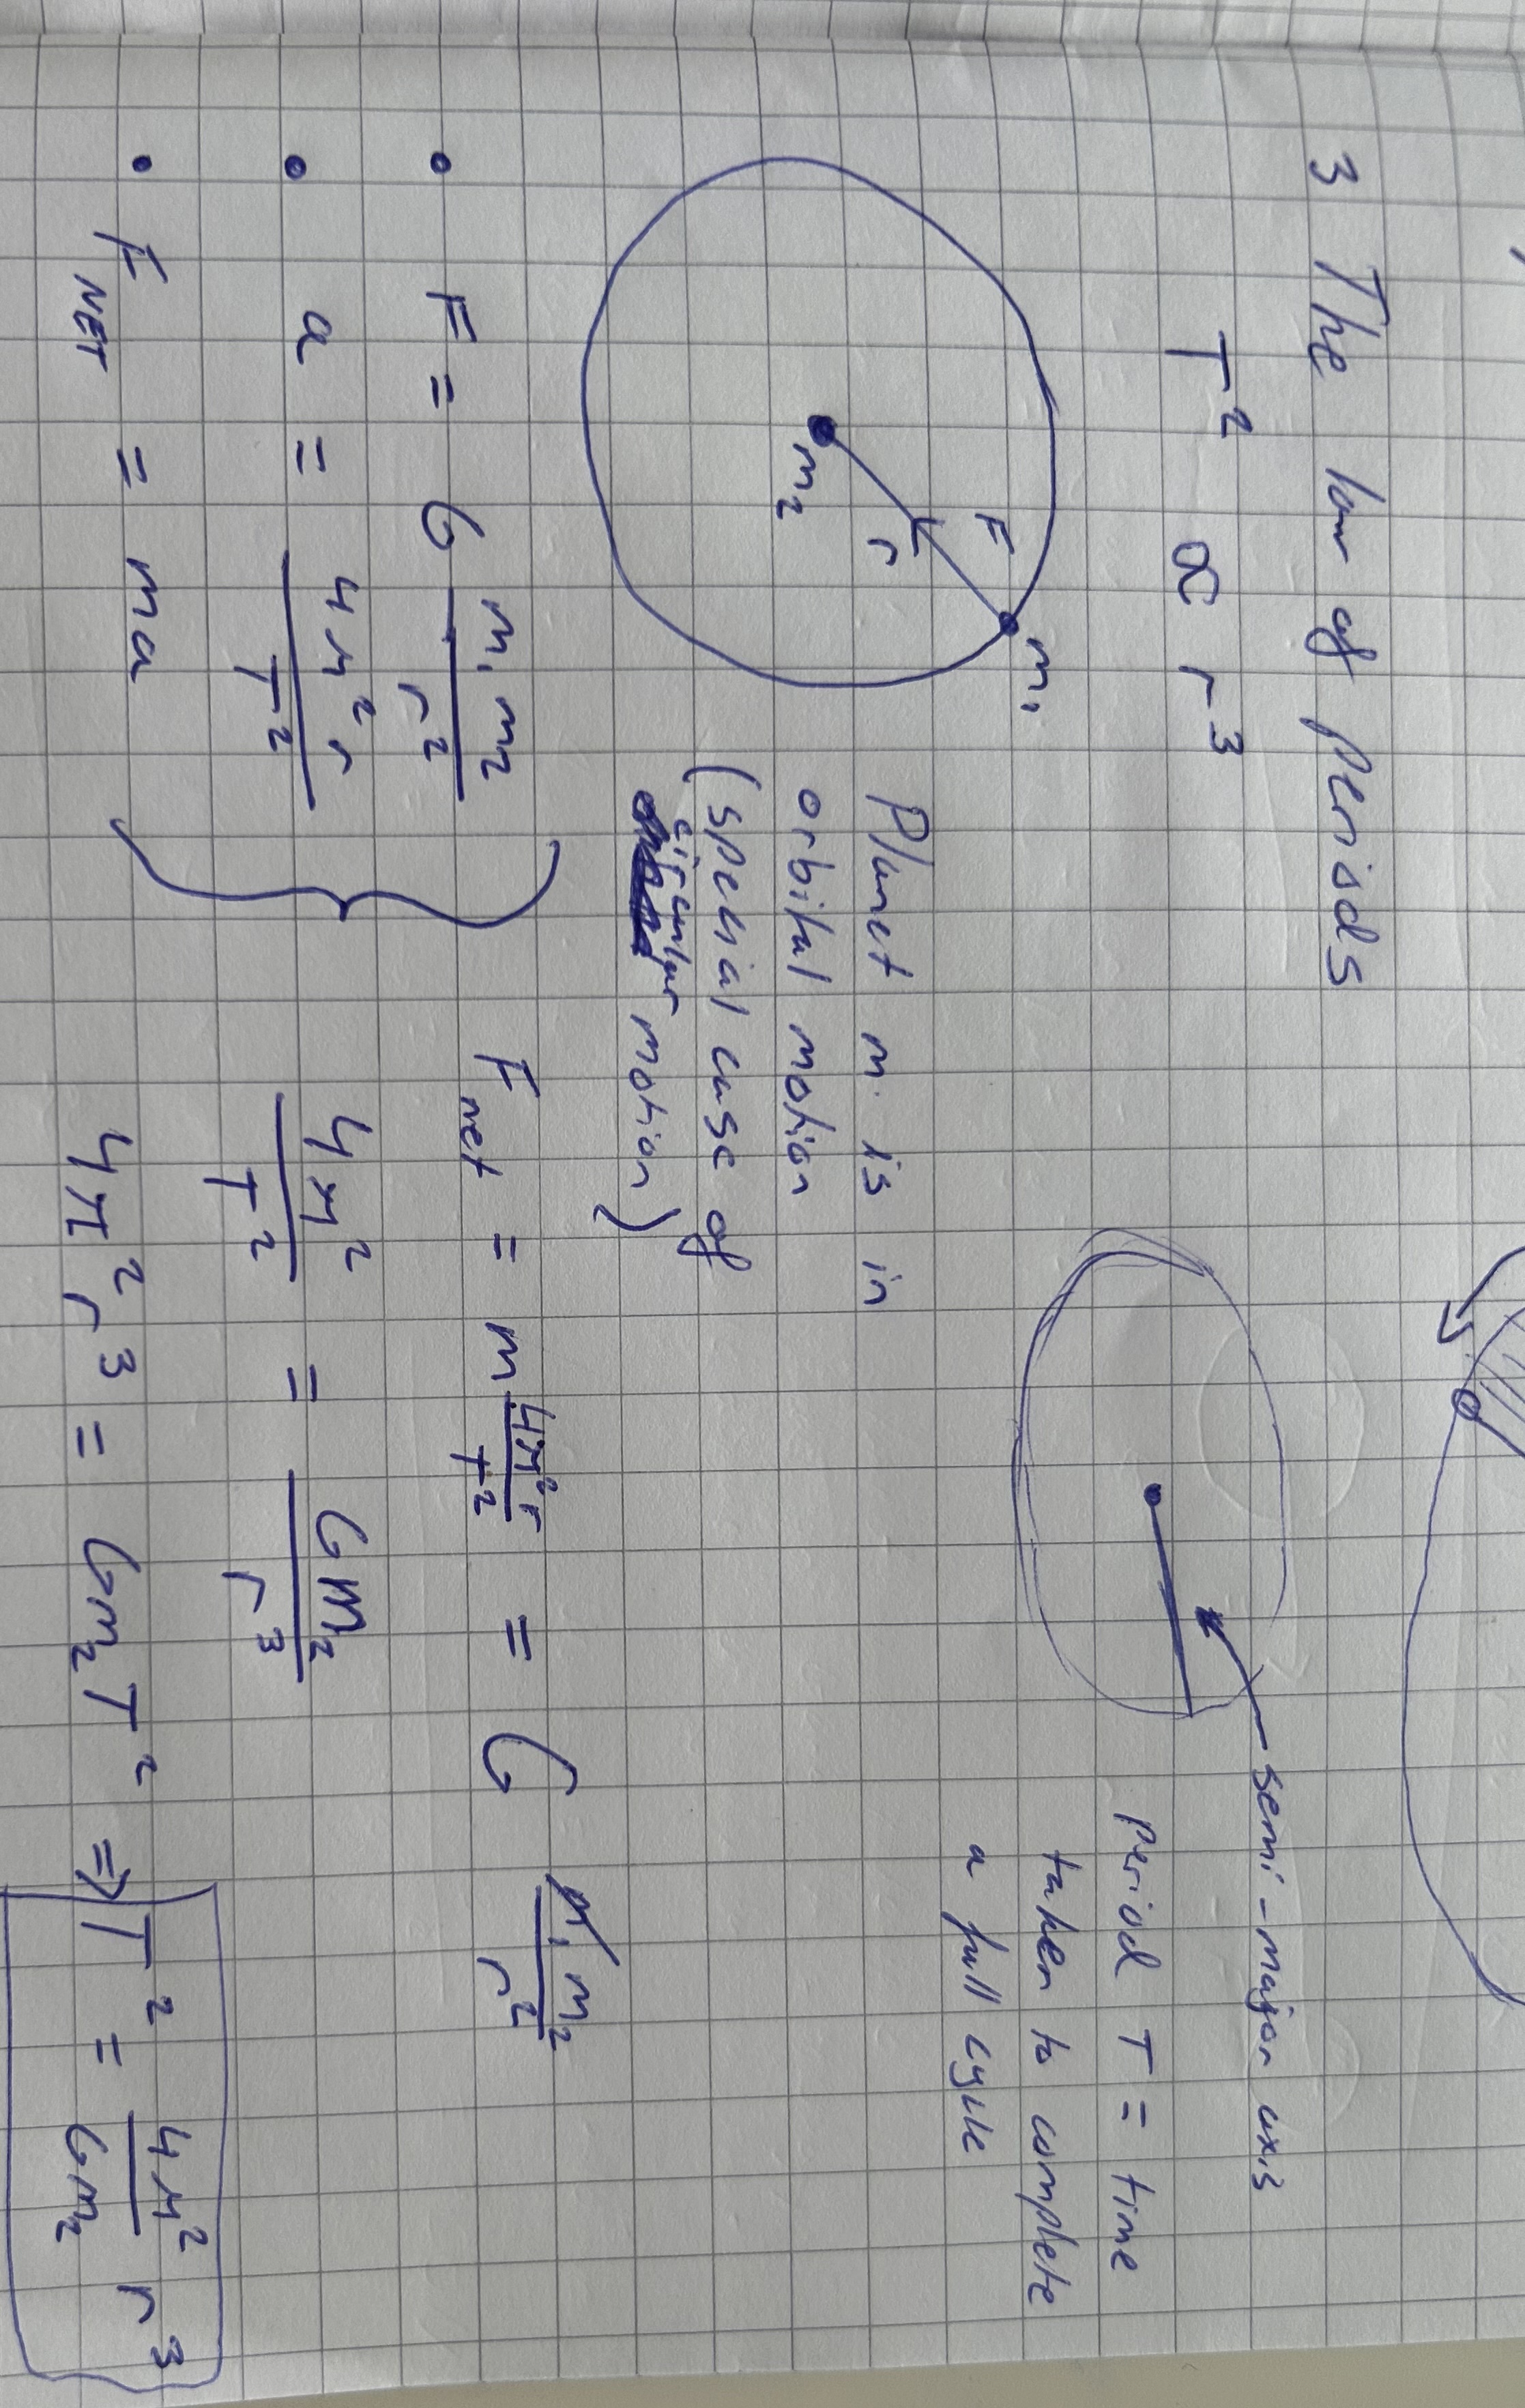 3 The law of Periods
T² ∝ r³
semi-major axis
Period T = time
taken to complete
a full cycle
m₁
F
r
m₂
Planet m. is in
orbital motion
(special case of
circular motion)
• F = G m₁m₂/r²
• a = 4π²r/T²
• F_NET = ma
F_net = m 4π²r/T² = G m₁m₂/r²
4π²/T² = Gm₂/r³
4π²r³ = Gm₂T² ⇒ T² = 4π²/Gm₂ r³